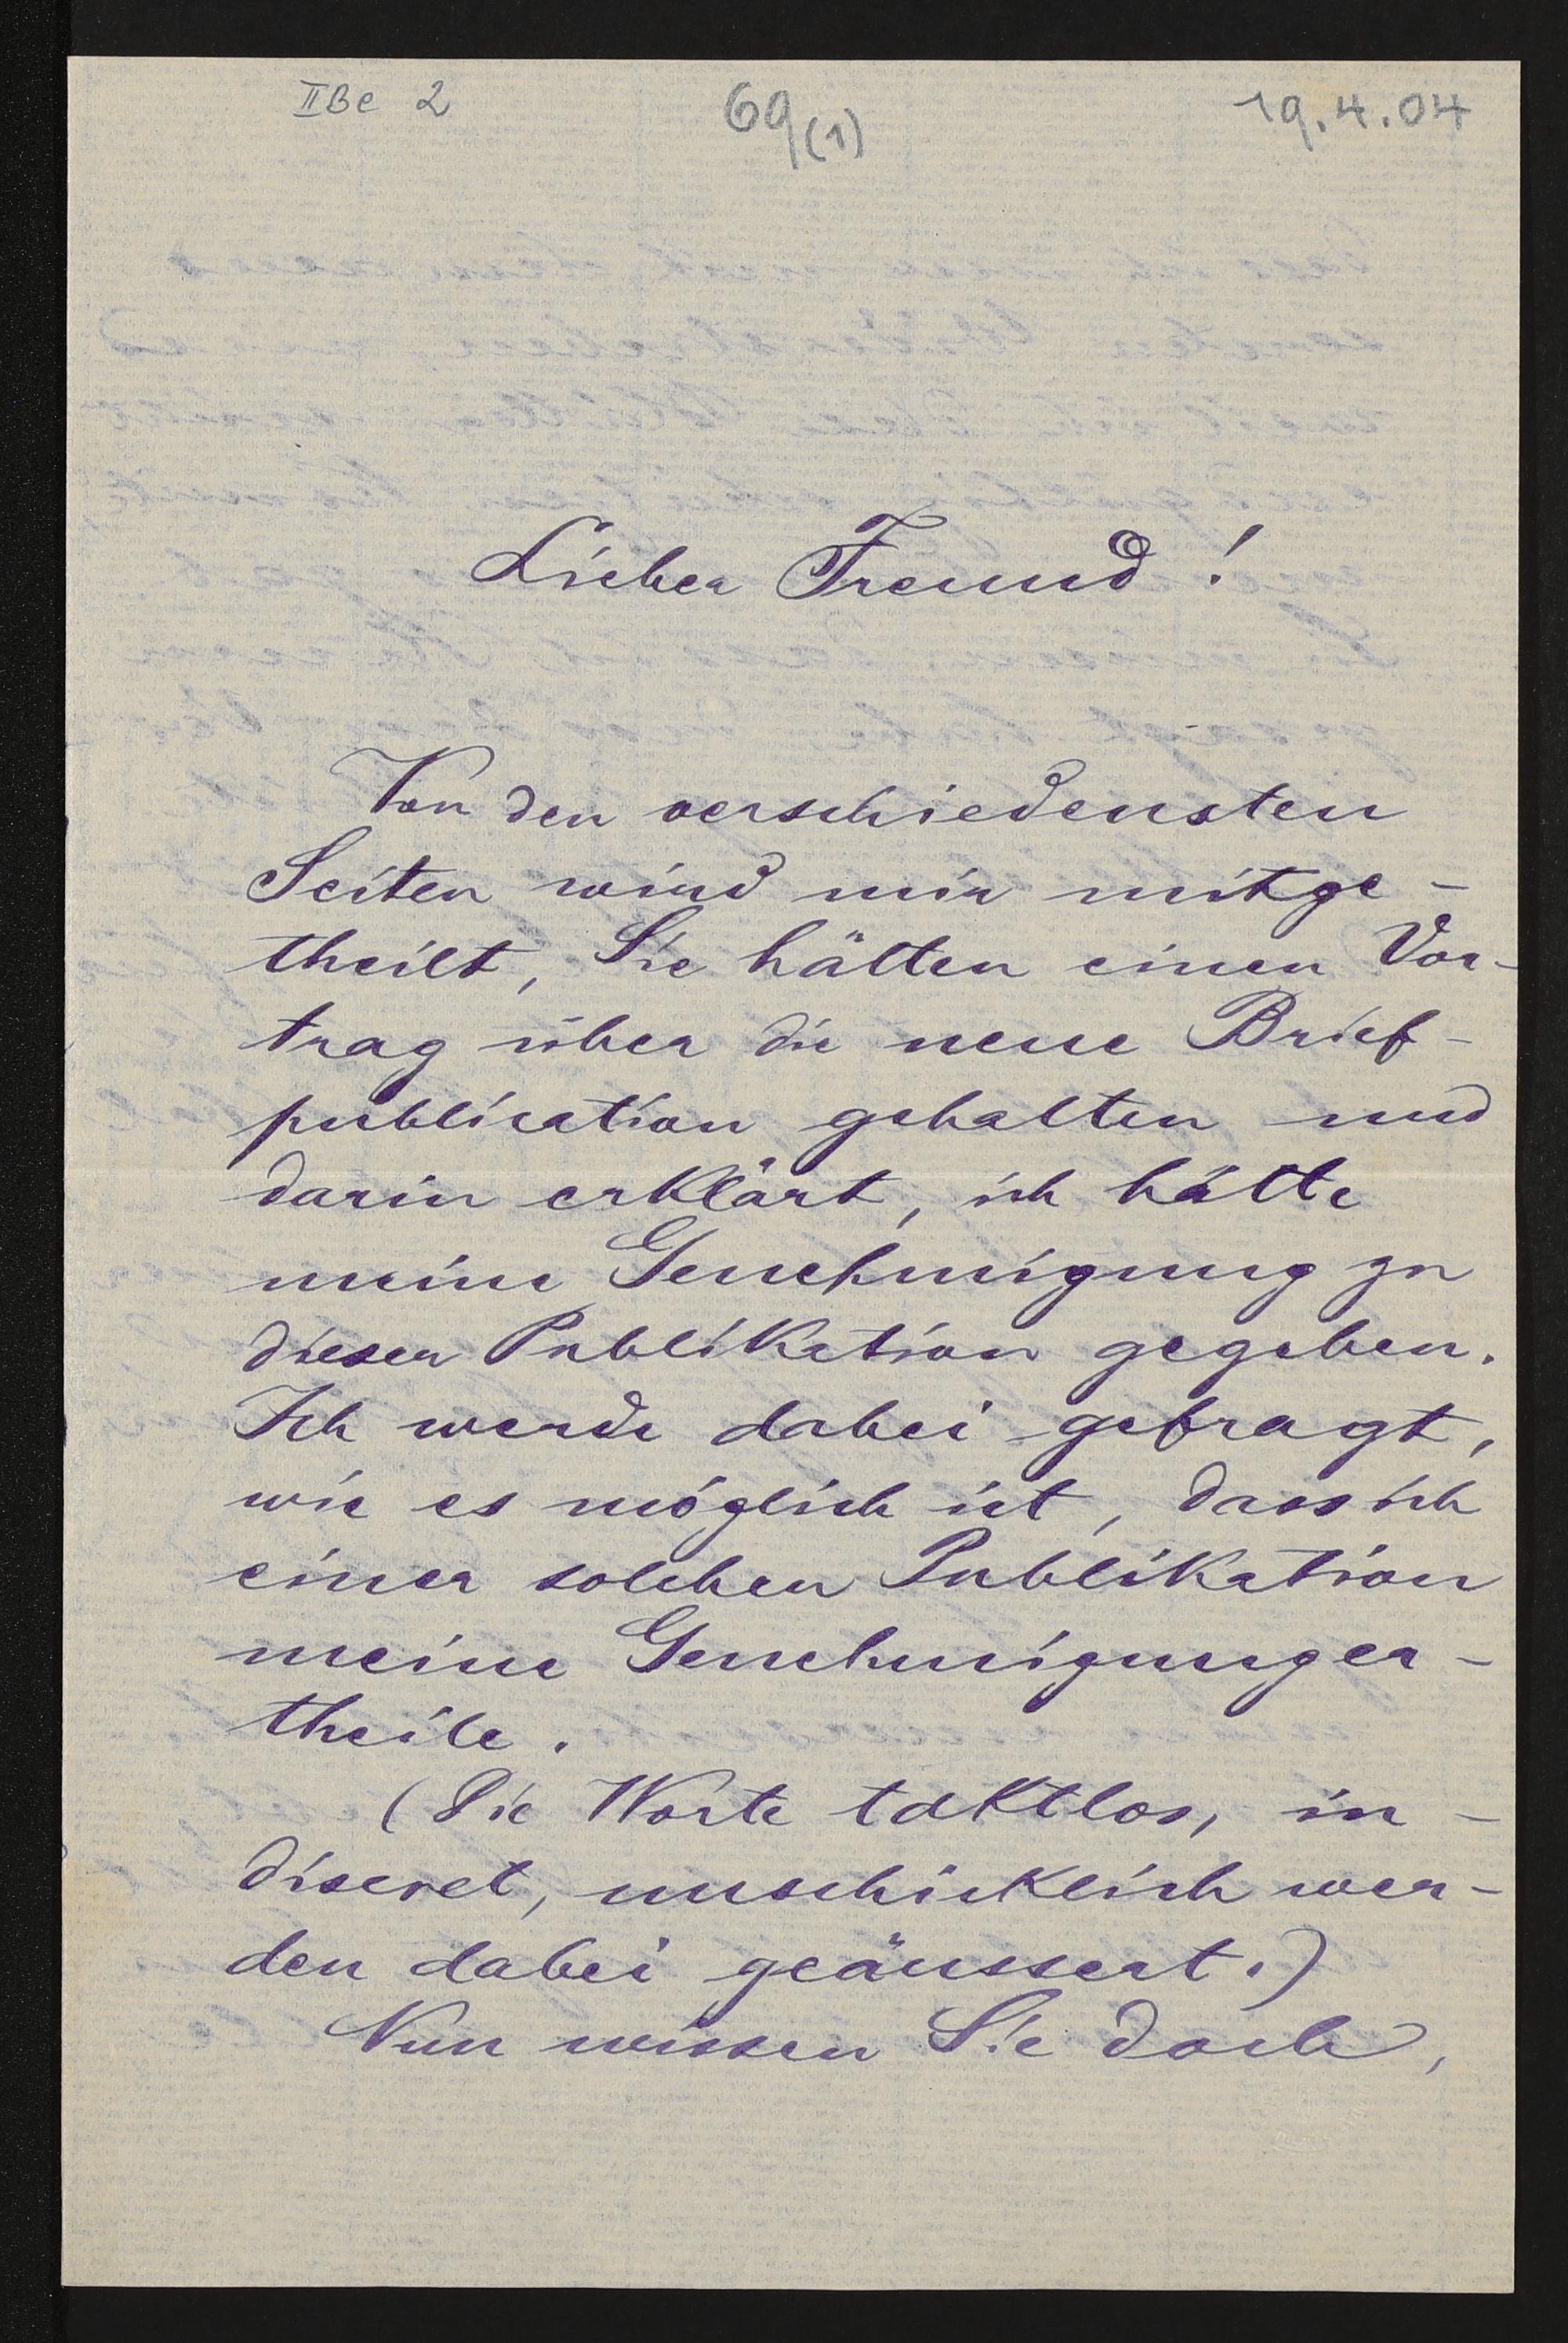 IIBe 2
69(1)
19.4.04
Lieber Freund!
Von den verschiedensten
Seiten wird mir mitge-
theilt, Sie hätten einen Vor-
trag über die neue Brief-
publication gehalten und
darin erklärt, ich hätte
meine Genehmigung zu
dieser Publikation gegeben.
Ich werde dabei gefragt,
wie es möglich ist, dass ich
einer solchen Publikation
meine Genehmigung er-
theile.
(Die Worte taktlos, in-
discret, unschicklich wer-
den dabei geäussert.)
Nun wissen Sie doch,